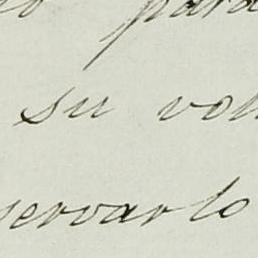 para
su vol
servarlo